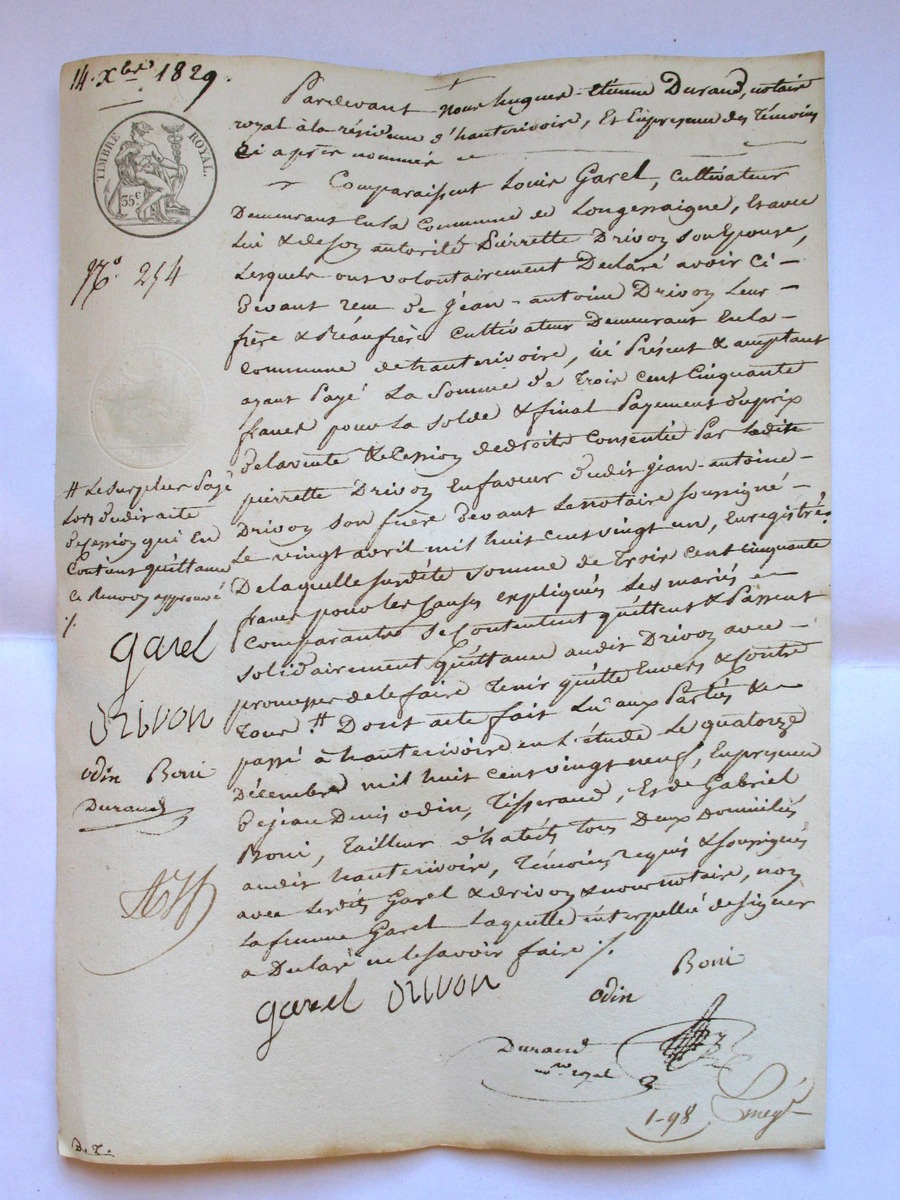 14. Xbre 1829.
TIMBRE ROYAL.
35c
No. 254
Pardevant Nous hugues-Etienne Durand, notaire
royal à la résidence d'hauterivoir, et En presence des Témoins
Ci après nommés
Comparaissent Louis Garel, Cultivateur
Demeurant en la Commune de Longessaigne, et avec
lui & de son autorité Pierrette Drivon son Epouse,
Lesquels ont volontairement Declaré avoir Ci-
devant reçu de jean-antoine Drivon Leur
frère & Béaufrère Cultivateur Demeurant En la
Commune de hauterivoire, ici Présent & acceptant
ayant Payé La Somme de Trois Cent Cinquante
francs pour La Solde & final Payement du prix
de la vente & Cession de droits Consentie Par Ladite
pierrette Drivon En faveur dudit jean-antoine
Drivon son frère devant Le notaire soussigné
Le vingt avril mil huit Cent vingt un, Enregistré.
De laquelle susdite somme de Trois Cent Cinquante
francs pour les Causes expliqués Les mariés
Comparants Se Contentent quittent & Passent
solidairement quittance audit Drivon avec
promesse de le faire Tenir quitte Envers & Contre
Tous #. Dont acte fait Lu aux Parties &
passé à hauterivoire en l'étude Le quatorze
Décembre mil huit Cent vingt neuf, En presence
de jean Denis odin, Tisserand, Et de Gabriel
Boni, Tailleur d'habits tous Deux Domiciliés
audit hauterivoire, Témoins requis & soussignés
avec Lesdits Garel & drivon & nous notaire, non
La femme Garel Laquelle interpellée de signer
a Declaré ne le savoir faire ./.
# Le surplus Payé
Lors dudit acte
de Cession qui En
Contient quittance
Ce Renvoy approuvé
./.
garel
Drivon
odin Boni
Durand
garel Drivon
odin Boni
Durand
nre royal
1-98
D. T.